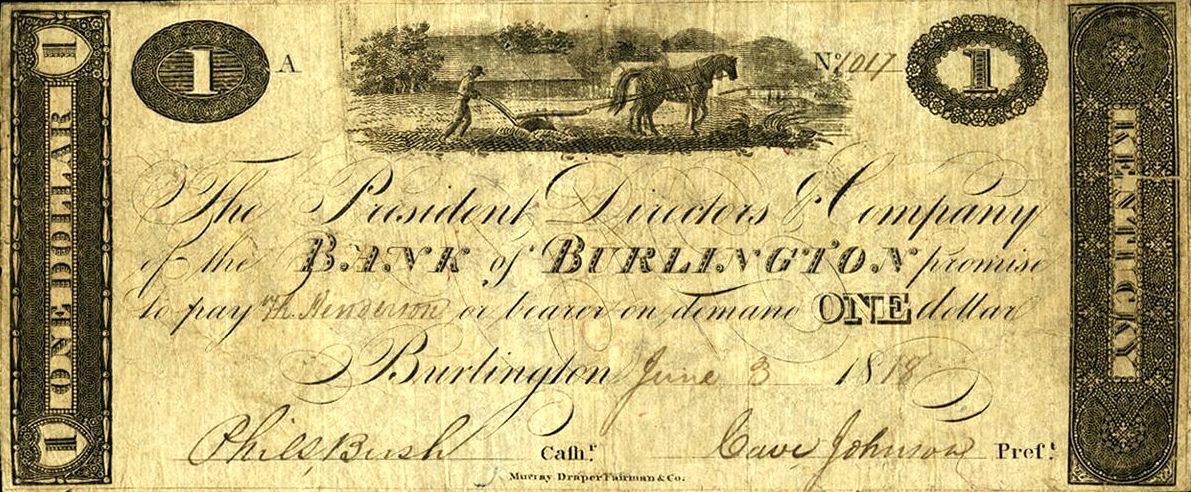 1 A No. 1017 1
The President Directors & Company
of the BANK of BURLINGTON promise
to pay Th. Henderson or bearer on demand ONE dollar
Burlington June 3 1818
Phil Bush Cashr. Cave Johnson Prest.
Murray Draper Fairman & Co.
1 ONE DOLLAR 1
KENTUCKY